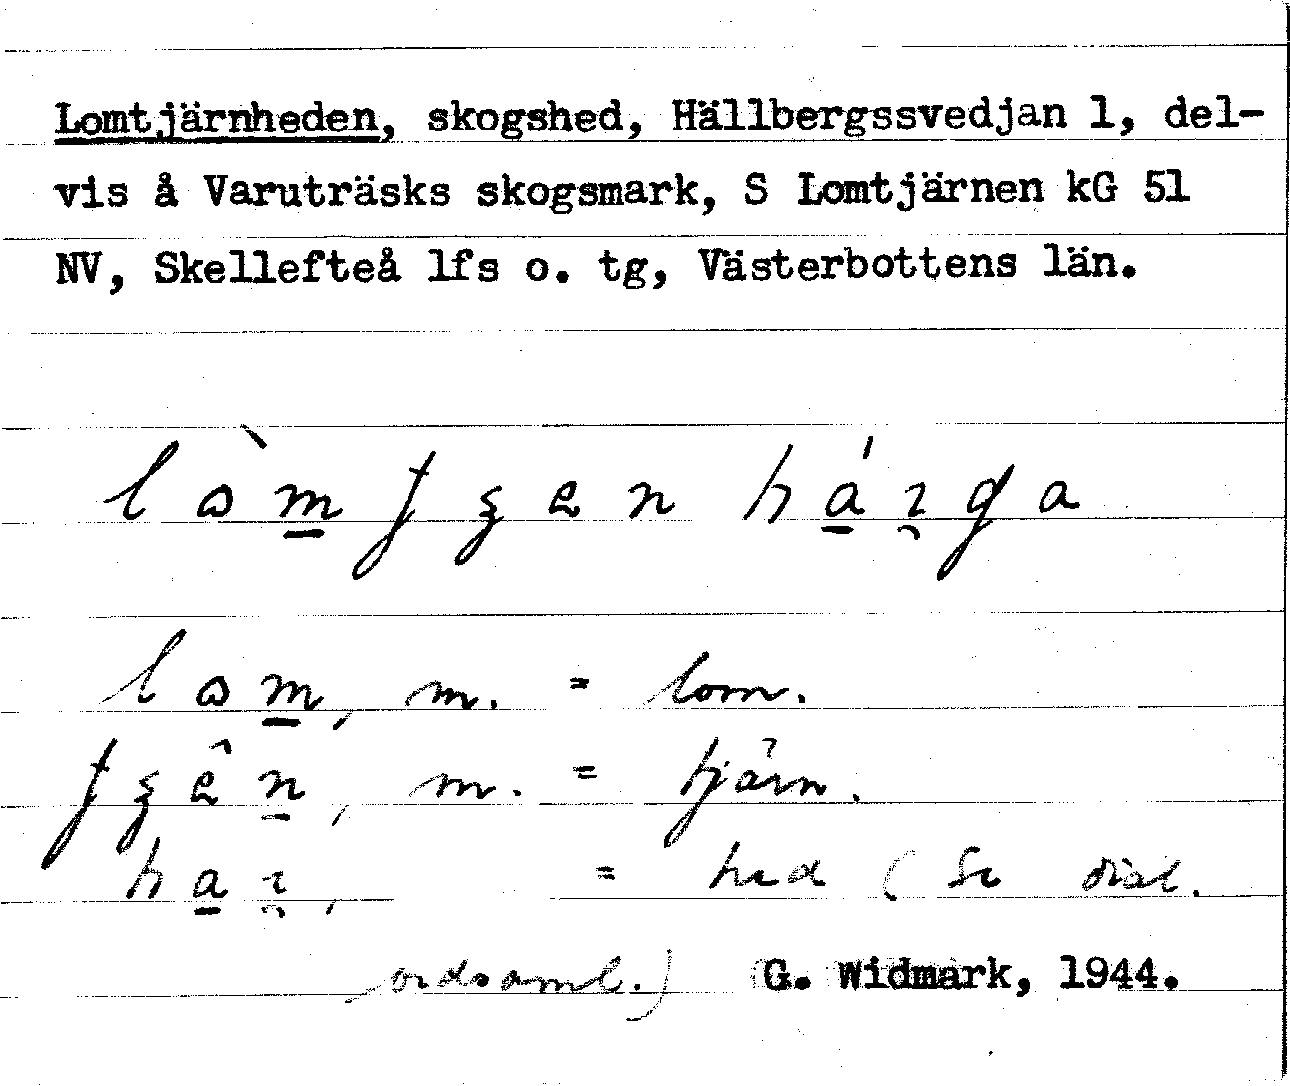 Lomtjärnheden, skogshed, Hällbergssvedjan 1, del-
vis å Varuträsks skogsmark, S Lomtjärnen kG 51
NV, Skellefteå lfs o. tg, Västerbottens län.
m. = lom.
m. = tjärn.
= hed (Se dial.
ordsaml.) G. Widmark, 1944.